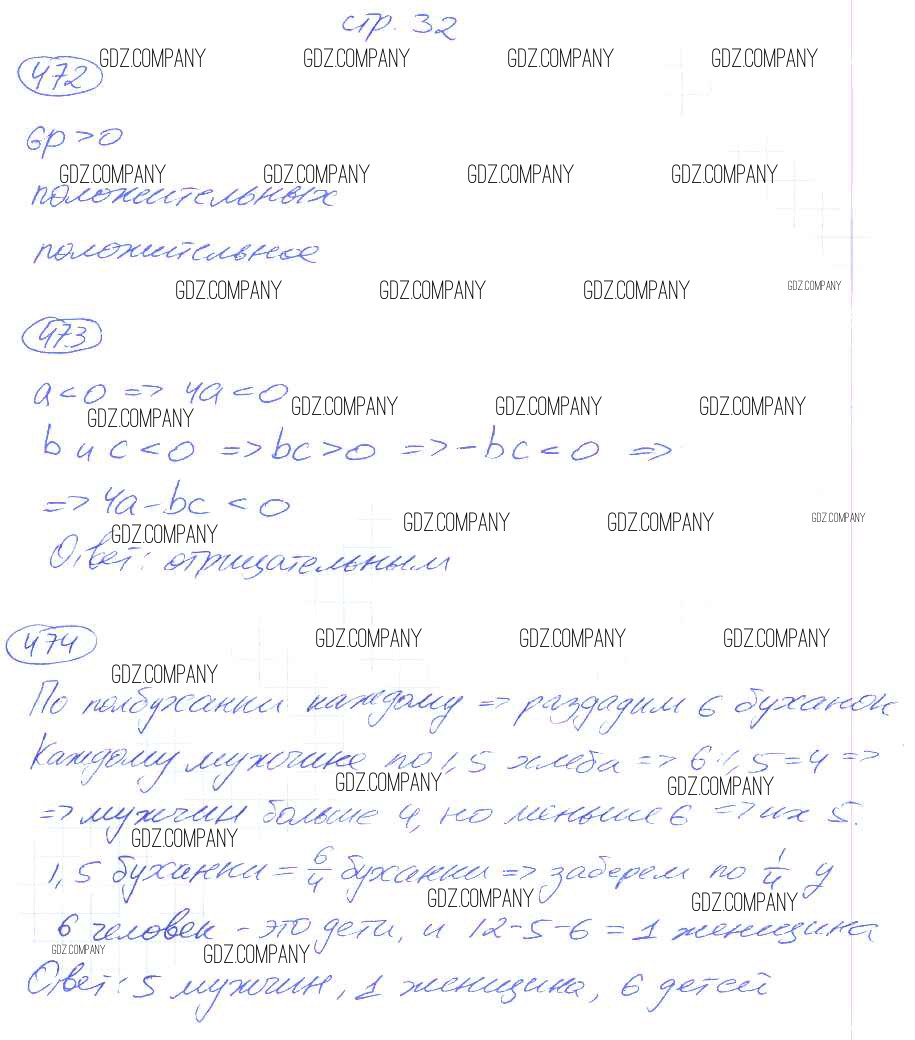 стр. 32
GDZ.COMPANY GDZ.COMPANY GDZ.COMPANY GDZ.COMPANY
472
6p > 0
GDZ.COMPANY GDZ.COMPANY GDZ.COMPANY GDZ.COMPANY
положительных
положительное
GDZ.COMPANY GDZ.COMPANY GDZ.COMPANY GDZ.COMPANY
473
a < 0 => 4a < 0
GDZ.COMPANY GDZ.COMPANY GDZ.COMPANY GDZ.COMPANY
b и c < 0 => bc > 0 => -bc < 0 =>
=> 4a - bc < 0
GDZ.COMPANY GDZ.COMPANY GDZ.COMPANY GDZ.COMPANY
Ответ: отрицательным
474
GDZ.COMPANY GDZ.COMPANY GDZ.COMPANY GDZ.COMPANY
По полбуханки каждому => раздадим 6 буханок
Каждому мужчине по 1,5 хлеба => 6:1,5=4 =>
GDZ.COMPANY GDZ.COMPANY
=> мужчин больше 4, но меньше 6 => их 5.
GDZ.COMPANY
1,5 буханки = 6/4 буханки => заберем по 1/4 у
GDZ.COMPANY GDZ.COMPANY
6 человек - это дети, и 12-5-6 = 1 женщина
GDZ.COMPANY GDZ.COMPANY
Ответ: 5 мужчин, 1 женщина, 6 детей